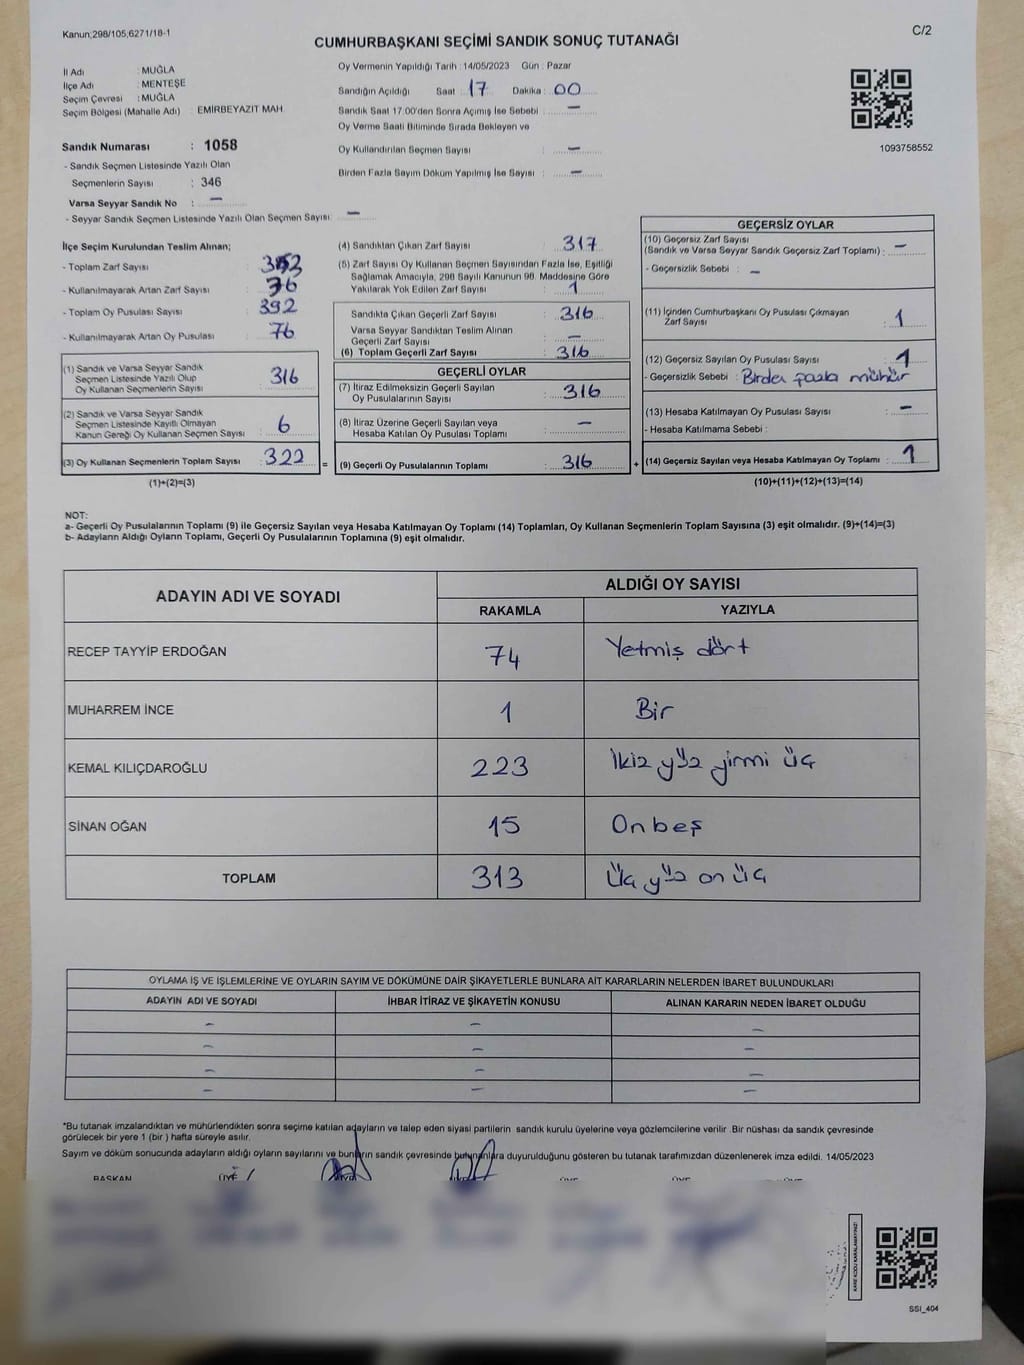 Kanun;298/105,6271/18-1
C/2
CUMHURBAŞKANI SEÇİMİ SANDIK SONUÇ TUTANAĞI
İl Adı : MUĞLA
İlçe Adı : MENTEŞE
Seçim Çevresi : MUĞLA
Seçim Bölgesi (Mahalle Adı) : EMİRBEYAZIT MAH.
Sandık Numarası : 1058
- Sandık Seçmen Listesinde Yazılı Olan
Seçmenlerin Sayısı : 346
Varsa Seyyar Sandık No : —
- Seyyar Sandık Seçmen Listesinde Yazılı Olan Seçmen Sayısı: —
Oy Vermenin Yapıldığı Tarih : 14/05/2023 Gün : Pazar
Sandığın Açıldığı Saat : 17 Dakika : 00
Sandık Saat 17:00'den Sonra Açımış İse Sebebi : —
Oy Verme Saati Bitiminde Sırada Bekleyen ve
Oy Kullandırılan Seçmen Sayısı : —
Birden Fazla Sayım Döküm Yapılmış İse Sayısı : —
1093758552
İlçe Seçim Kurulundan Teslim Alınan;
- Toplam Zarf Sayısı :
- Kullanılmayarak Artan Zarf Sayısı : 76
- Toplam Oy Pusulası Sayısı : 392
- Kullanılmayarak Artan Oy Pusulası : 76
(1) Sandık ve Varsa Seyyar Sandık
Seçmen Listesinde Yazılı Olup
Oy Kullanan Seçmenlerin Sayısı : 316
(2) Sandık ve Varsa Seyyar Sandık
Seçmen Listesinde Kayıtlı Olmayan
Kanun Gereği Oy Kullanan Seçmen Sayısı : 6
(3) Oy Kullanan Seçmenlerin Toplam Sayısı : 322
(1)+(2)=(3)
(4) Sandıktan Çıkan Zarf Sayısı : 317
(5) Zarf Sayısı Oy Kullanan Seçmen Sayısından Fazla İse, Eşitliği
Sağlamak Amacıyla, 298 Sayılı Kanunun 98. Maddesine Göre
Yakılarak Yok Edilen Zarf Sayısı : 1
Sandıkta Çıkan Geçerli Zarf Sayısı : 316
Varsa Seyyar Sandıktan Teslim Alınan
Geçerli Zarf Sayısı : —
(6) Toplam Geçerli Zarf Sayısı : 316
GEÇERLİ OYLAR
(7) İtiraz Edilmeksizin Geçerli Sayılan
Oy Pusulalarının Sayısı : 316
(8) İtiraz Üzerine Geçerli Sayılan veya
Hesaba Katılan Oy Pusulası Toplamı : —
= (9) Geçerli Oy Pusulalarının Toplamı : 316 +
GEÇERSİZ OYLAR
(10) Geçersiz Zarf Sayısı
(Sandık ve Varsa Seyyar Sandık Geçersiz Zarf Toplamı) : —
- Geçersizlik Sebebi : —
(11) İçinden Cumhurbaşkanı Oy Pusulası Çıkmayan
Zarf Sayısı : 1
(12) Geçersiz Sayılan Oy Pusulası Sayısı : 1
- Geçersizlik Sebebi : Birden fazla mühür
(13) Hesaba Katılmayan Oy Pusulası Sayısı : —
- Hesaba Katılmama Sebebi :
(14) Geçersiz Sayılan veya Hesaba Katılmayan Oy Toplamı : 1
(10)+(11)+(12)+(13)=(14)
NOT:
a- Geçerli Oy Pusulalarının Toplamı (9) ile Geçersiz Sayılan veya Hesaba Katılmayan Oy Toplamı (14) Toplamları, Oy Kullanan Seçmenlerin Toplam Sayısına (3) eşit olmalıdır. (9)+(14)=(3)
b- Adayların Aldığı Oyların Toplamı, Geçerli Oy Pusulalarının Toplamına (9) eşit olmalıdır.
ADAYIN ADI VE SOYADI ALDIĞI OY SAYISI
RAKAMLA YAZIYLA
RECEP TAYYİP ERDOĞAN 74 Yetmiş dört
MUHARREM İNCE 1 Bir
KEMAL KILIÇDAROĞLU 223 İkiz yüz yirmi üç
SİNAN OĞAN 15 Onbeş
TOPLAM 313 Üç yüz on üç
OYLAMA İŞ VE İŞLEMLERİNE VE OYLARIN SAYIM VE DÖKÜMÜNE DAİR ŞİKAYETLERLE BUNLARA AİT KARARLARIN NELERDEN İBARET BULUNDUKLARI
ADAYIN ADI VE SOYADI İHBAR İTİRAZ VE ŞİKAYETİN KONUSU ALINAN KARARIN NEDEN İBARET OLDUĞU
— — —
— — —
— — —
— — —
*Bu tutanak imzalandıktan ve mühürlendikten sonra seçime katılan adayların ve talep eden siyasi partilerin sandık kurulu üyelerine veya gözlemcilerine verilir .Bir nüshası da sandık çevresinde
görülecek bir yere 1 (bir ) hafta süreyle asılır.
Sayım ve döküm sonucunda adayların aldığı oyların sayılarını ve bunların sandık çevresinde bulunanlara duyurulduğunu gösteren bu tutanak tarafımızdan düzenlenerek imza edildi. 14/05/2023
BAŞKAN ÜYE ÜYE ÜYE ÜYE ÜYE ÜYE
KARE KODU KARALAMAYINIZ!
SSİ_404